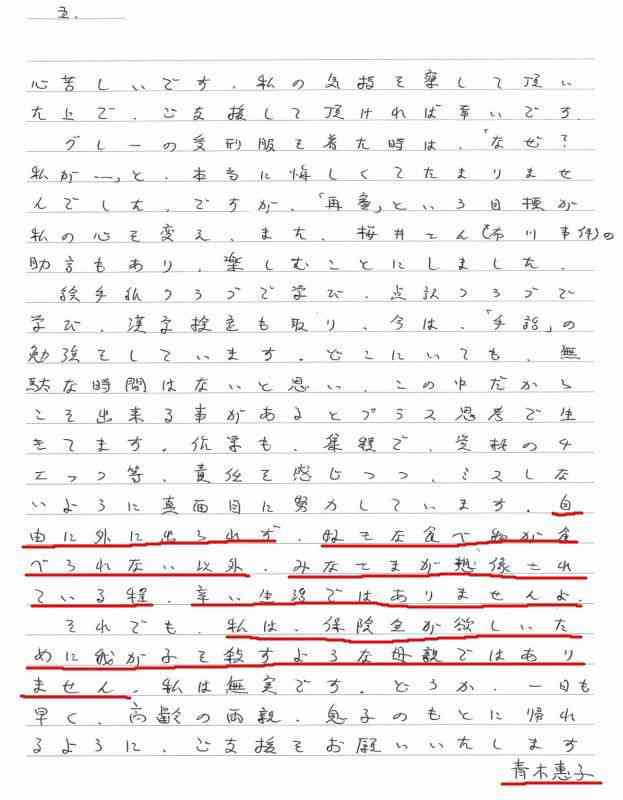 2.
心苦しいです。私の気持を察して頂い
た上で、ご支援して頂ければ幸いです。
グレーの受刑服を着た時は、「なぜ?
私が―」と、本当に悔しくてたまりませ
んでした。ですが、「再審」という目標が
私の心を変え、また、桜井さん(布川事件)の
助言もあり、楽しむことにしました。
絵手紙クラブで学び、点訳クラブで
学び、漢字検定も取り、今は、「手話」の
勉強をしています。どこにいても、無
駄な時間はないと思い、この中だから
こそ出来る事があるとプラス思考で生
きてます。作業も、
で、
の
チェック等、責任を感じつつ、ミスしな
いように真面目に努力しています。自
由に外に出られず、好きな食べ物が食
べられない以外、みなさまが想像され
ている程、辛い生活ではありませんよ。
それでも、私は、保険金が欲しいた
めに我が子を殺すような母親ではあり
ません。私は無実です。どうか、一日も
早く、高齢の両親、息子のもとに帰れ
るように、ご支援をお願いいたします
青木惠子